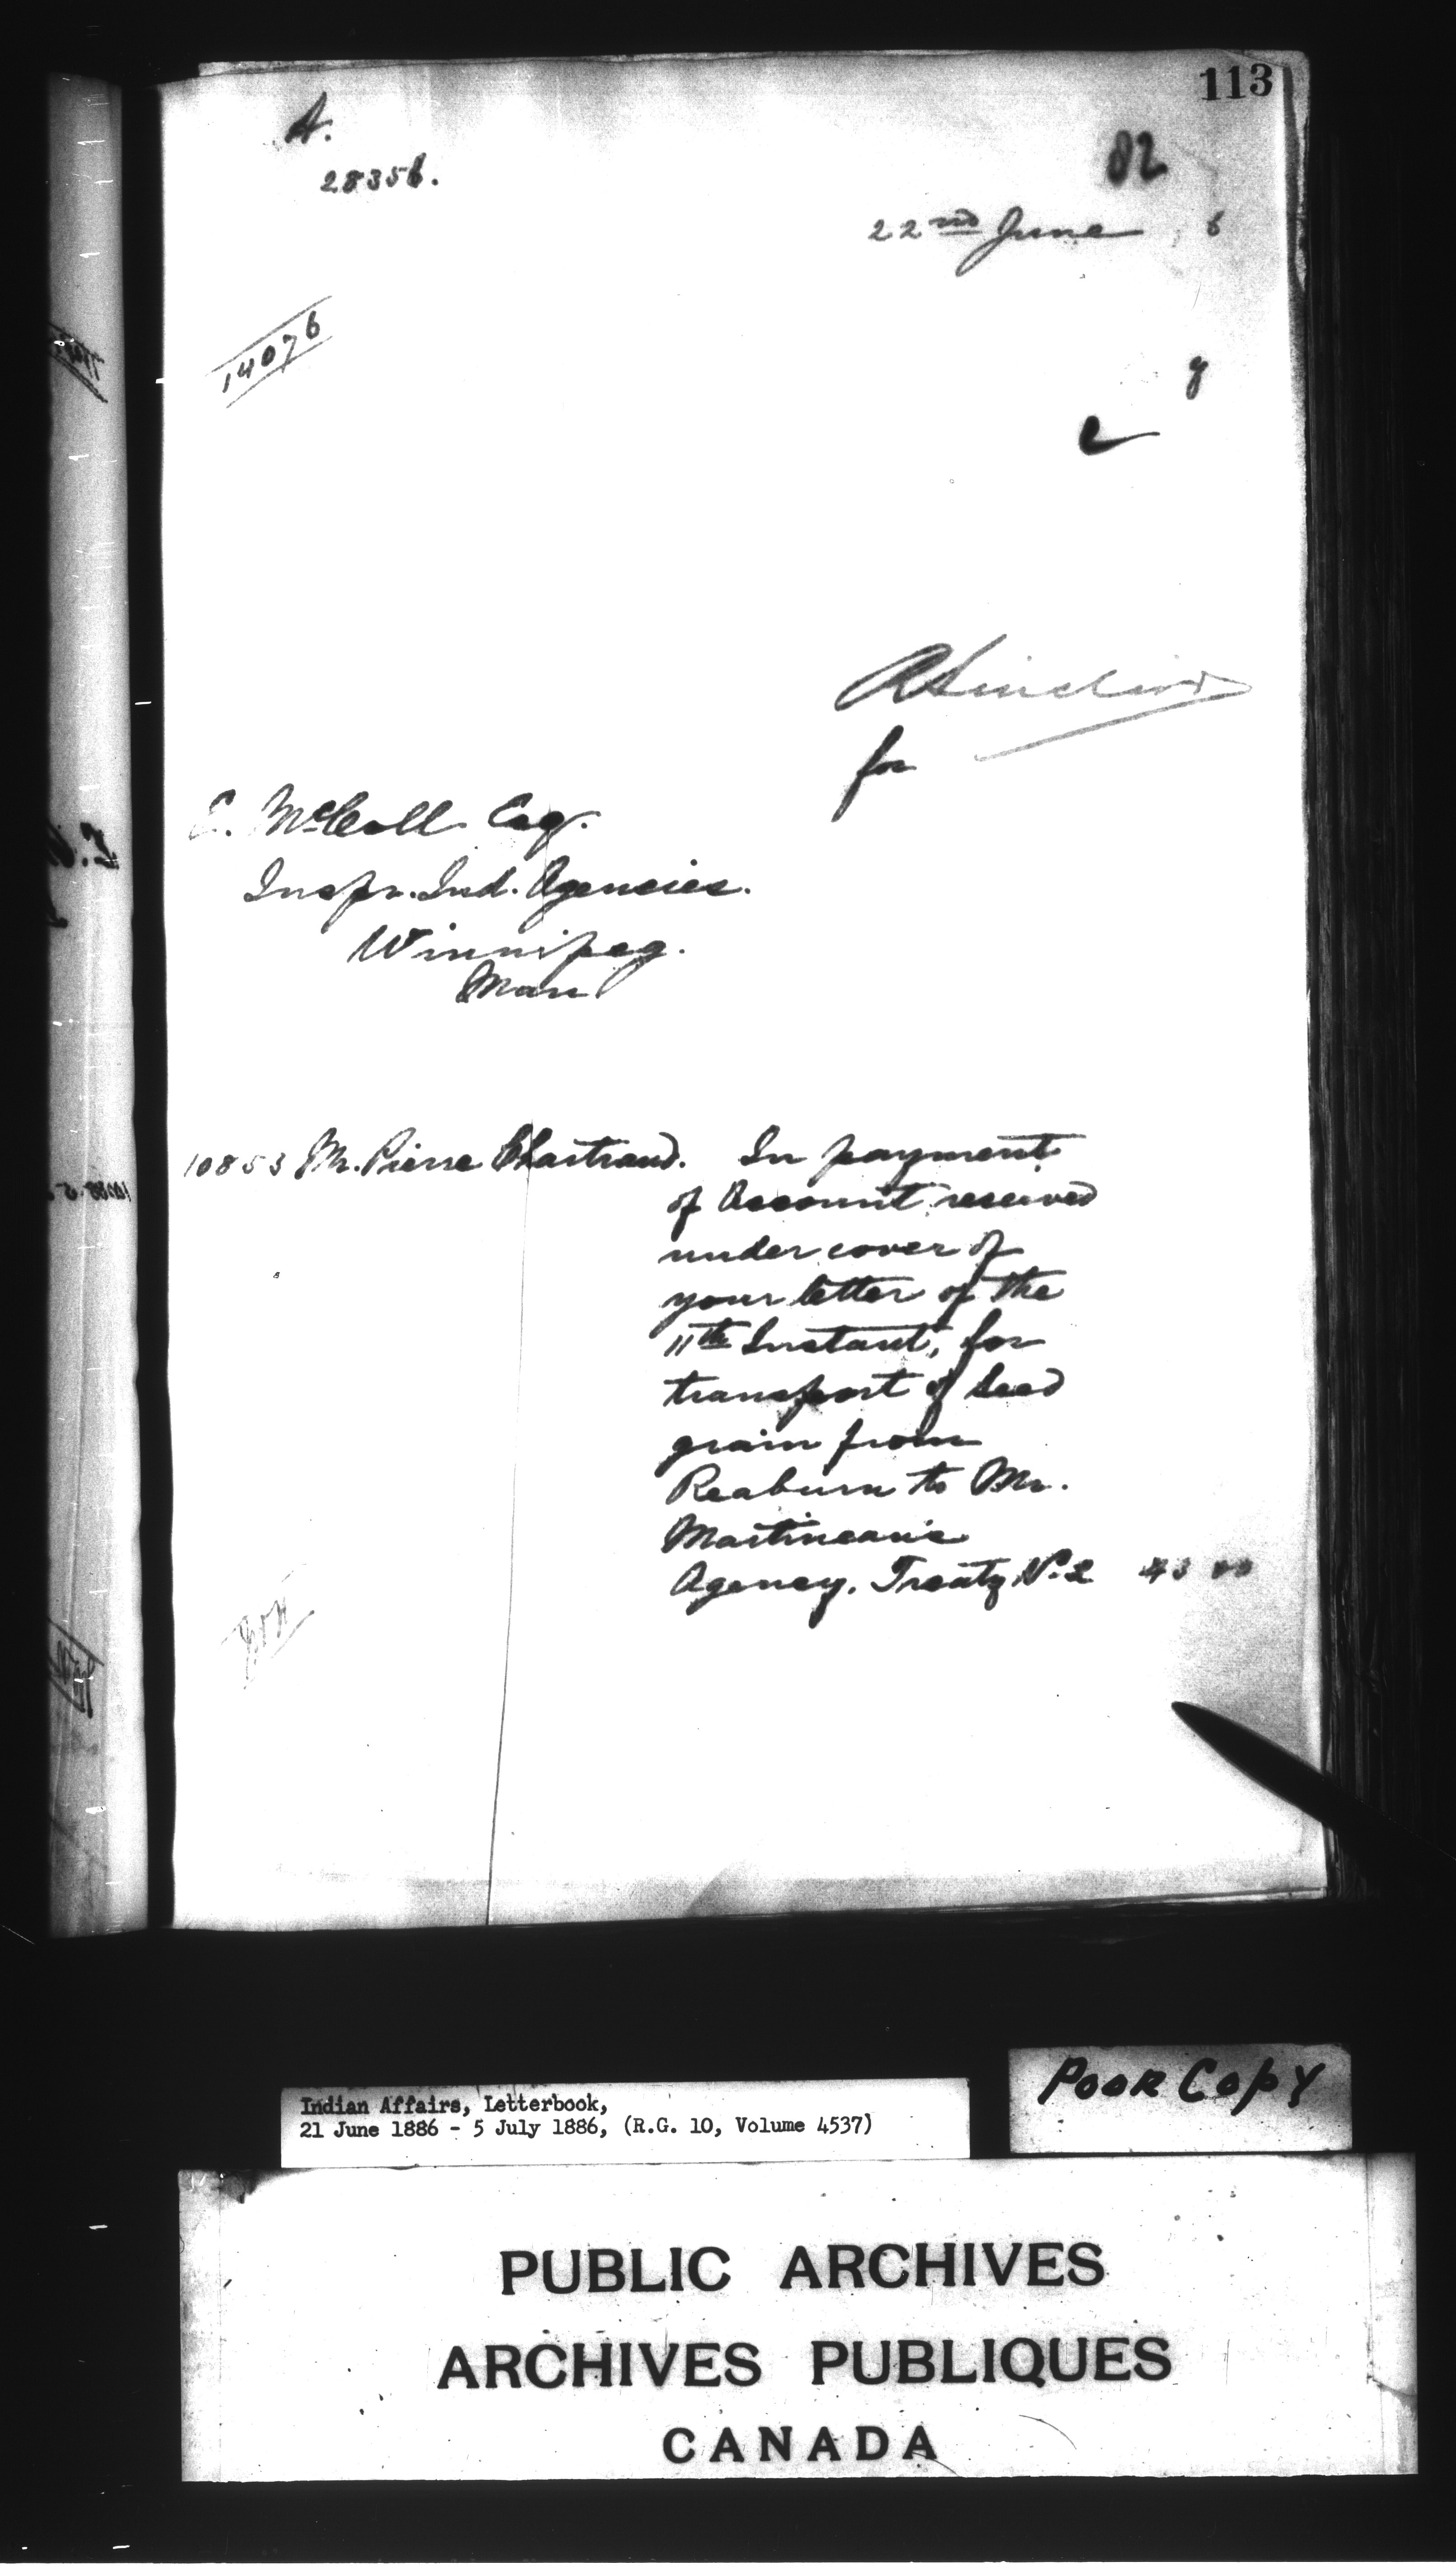 113
A.
28356.
82
22nd June 6
14076
y
RSinclair
for
E. McColl Esq.
Inspr. Ind. Agencies.
Winnipeg.
Man
10853 Mr. Pierre Chartrand. In payment
of Account received
under cover of
your letter of the
11th Instant, for
transport of Seed
grain from
Reaburn to Mr.
Martineau's
Agency. Treaty No. 2
Poor Copy
Indian Affairs, Letterbook,
21 June 1886 - 5 July 1886, (R.G. 10, Volume 4537)
PUBLIC ARCHIVES
ARCHIVES PUBLIQUES
CANADA